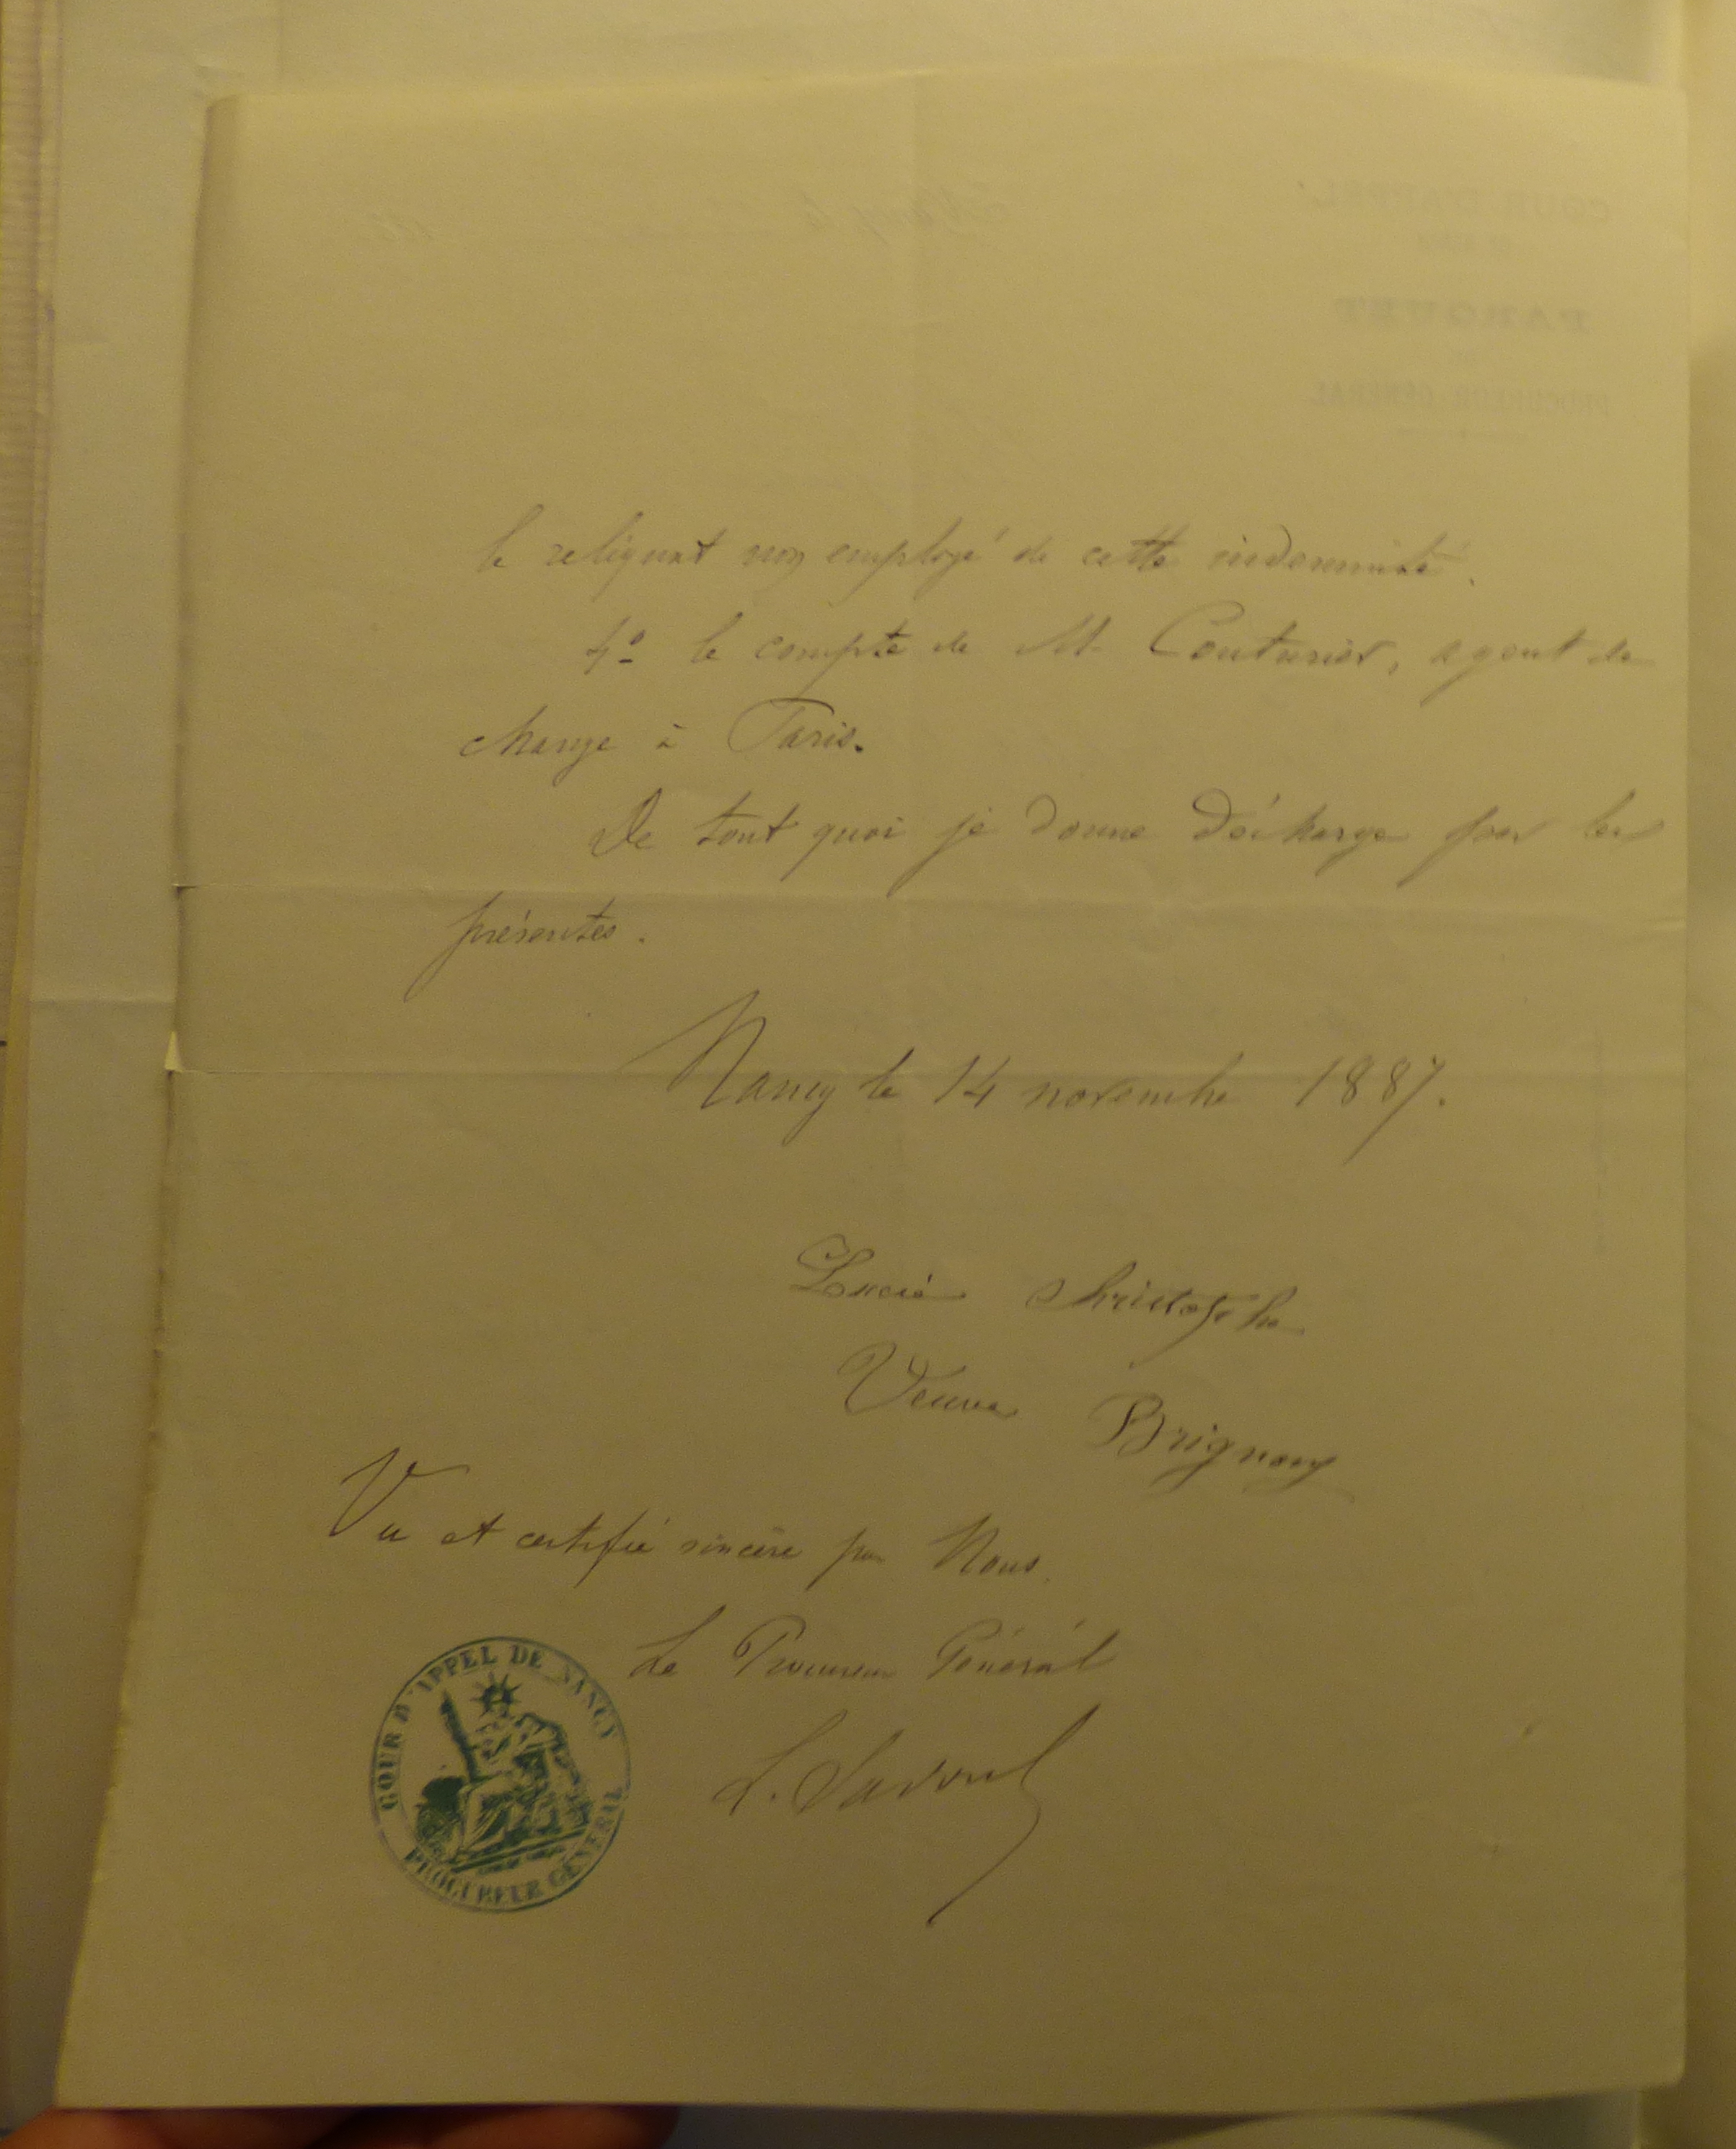 le reliquat non employé de cette indemnité.
4º le compte de M. Couturier, agent de
change à Paris.
De tout quoi je donne décharge par les
présentes.
Nancy le 14 novembre 1887.
Lucie Christophe
Veuve Brignon
Vu et certifié sincère par Nous.
Le Procureur Général
COUR D'APPEL DE NANCY
PROCUREUR GÉNÉRAL